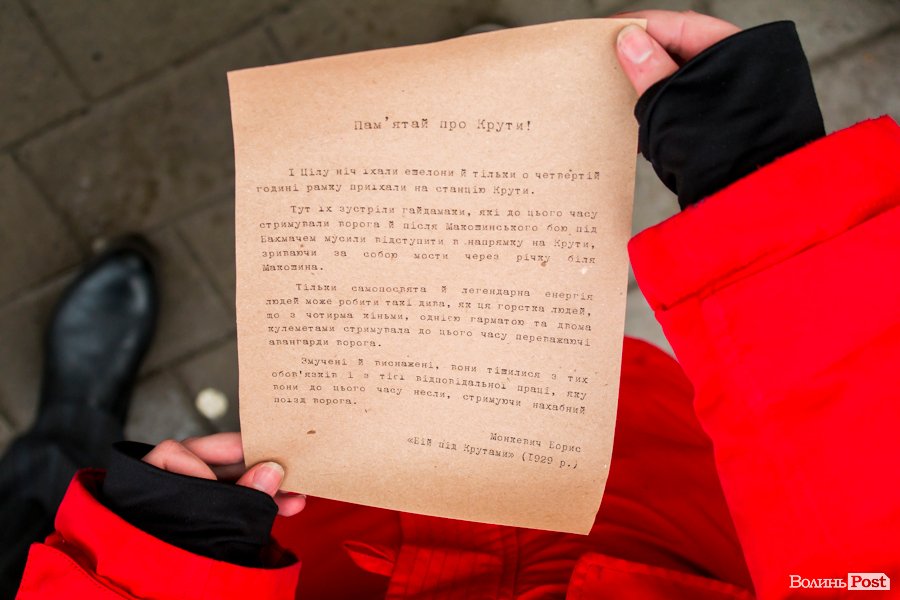 Пам'ятай про Крути!
І Цілу ніч їхали ешелони й тільки о четвертій
годині рамку приїхали на станцію Крути.
Тут їх зустріли гайдамаки, які до цього часу
стримували ворога й після Макошинського бою під
Бахмачем мусили відступити в напрямку на Крути,
зриваючи за собою мости через річку біля
Макошина.
Тільки самопосвята й легендарна енергія
людей може робити такі дива, як ця горстка людей,
що з чотирма кіньми, однією гарматою та двома
кулеметами стримувала до цього часу переважаючі
авангарди ворога.
Змучені й виснажені, вони тішилися з тих
обов'язків і з тієї відповідальної праці, яку
вони до цього часу несли, стримуючи нахабний
поїзд ворога.
Монкевич Борис
«Бій під Крутами» (1929 р.)
ВолиньPost